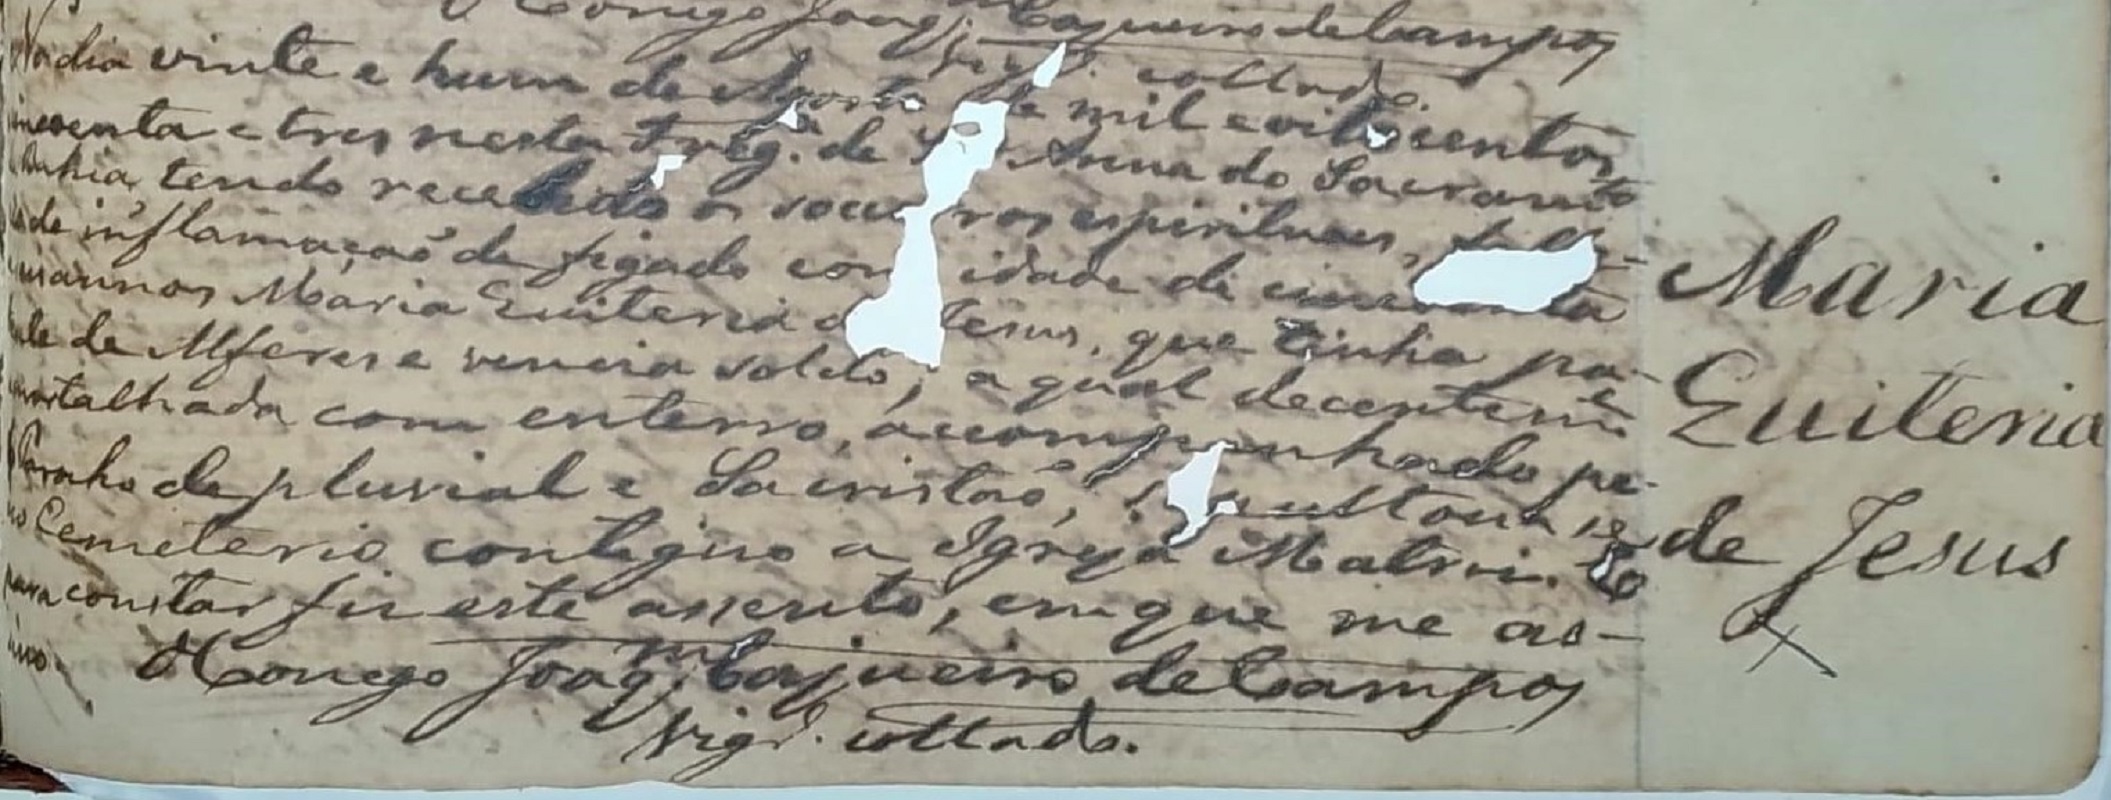 O Conego Joaqm. Cajueiro de Campos
Vigr. collado.
No dia vinte e hum de Agosto de mil e oito centos
e tres nesta Freg. de Sta Anna do Sacramto
Bahia, tendo recebido os soccorros espirituaes,
de inflamação de figado com idade de cincoenta
annos Maria Quiteria de Jesus, que tinha pa-
de Alferes e vencia soldo, a qual decentemte
amortalhada com enterro, accompanhado pe-
Parocho de pluvial e Sacristão, sepultou-se
no Cemeterio contiguo a Igreja Matriz. E
para constar fiz este assento, em que me as-
signo.
O Conego Joaqm. Cajueiro de Campos
Vigr. collado.
Maria
Quiteria
de Jesus